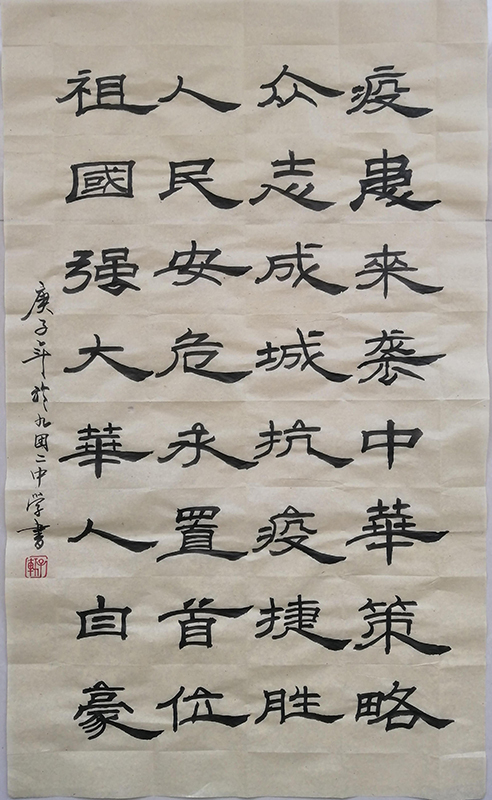 疫患来袭中華策略
众志成城抗疫捷胜
人民安危永置首位
祖國强大華人自豪
庚子年於九団二中学書